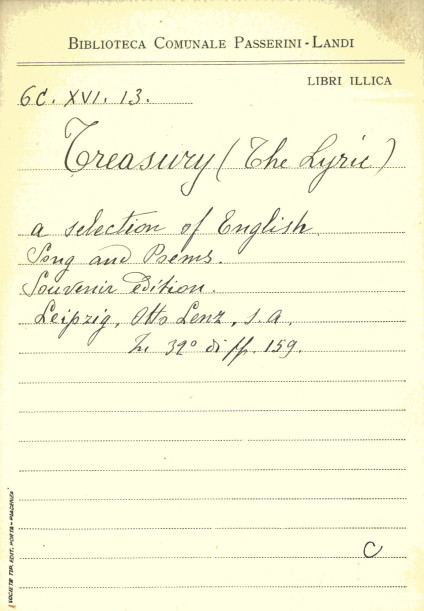 BIBLIOTECA COMUNALE PASSERINI-LANDI
LIBRI ILLICA
6C. XVI. 13.
Treasury (The Lyric)
a selection of English
Song and Poems.
Souvenir edition.
Leipzig, Otto Lenz, s.a.
In 32° di pp. 159.
C
SOCIETÀ TIP. EDIT. PORTA - PIACENZA